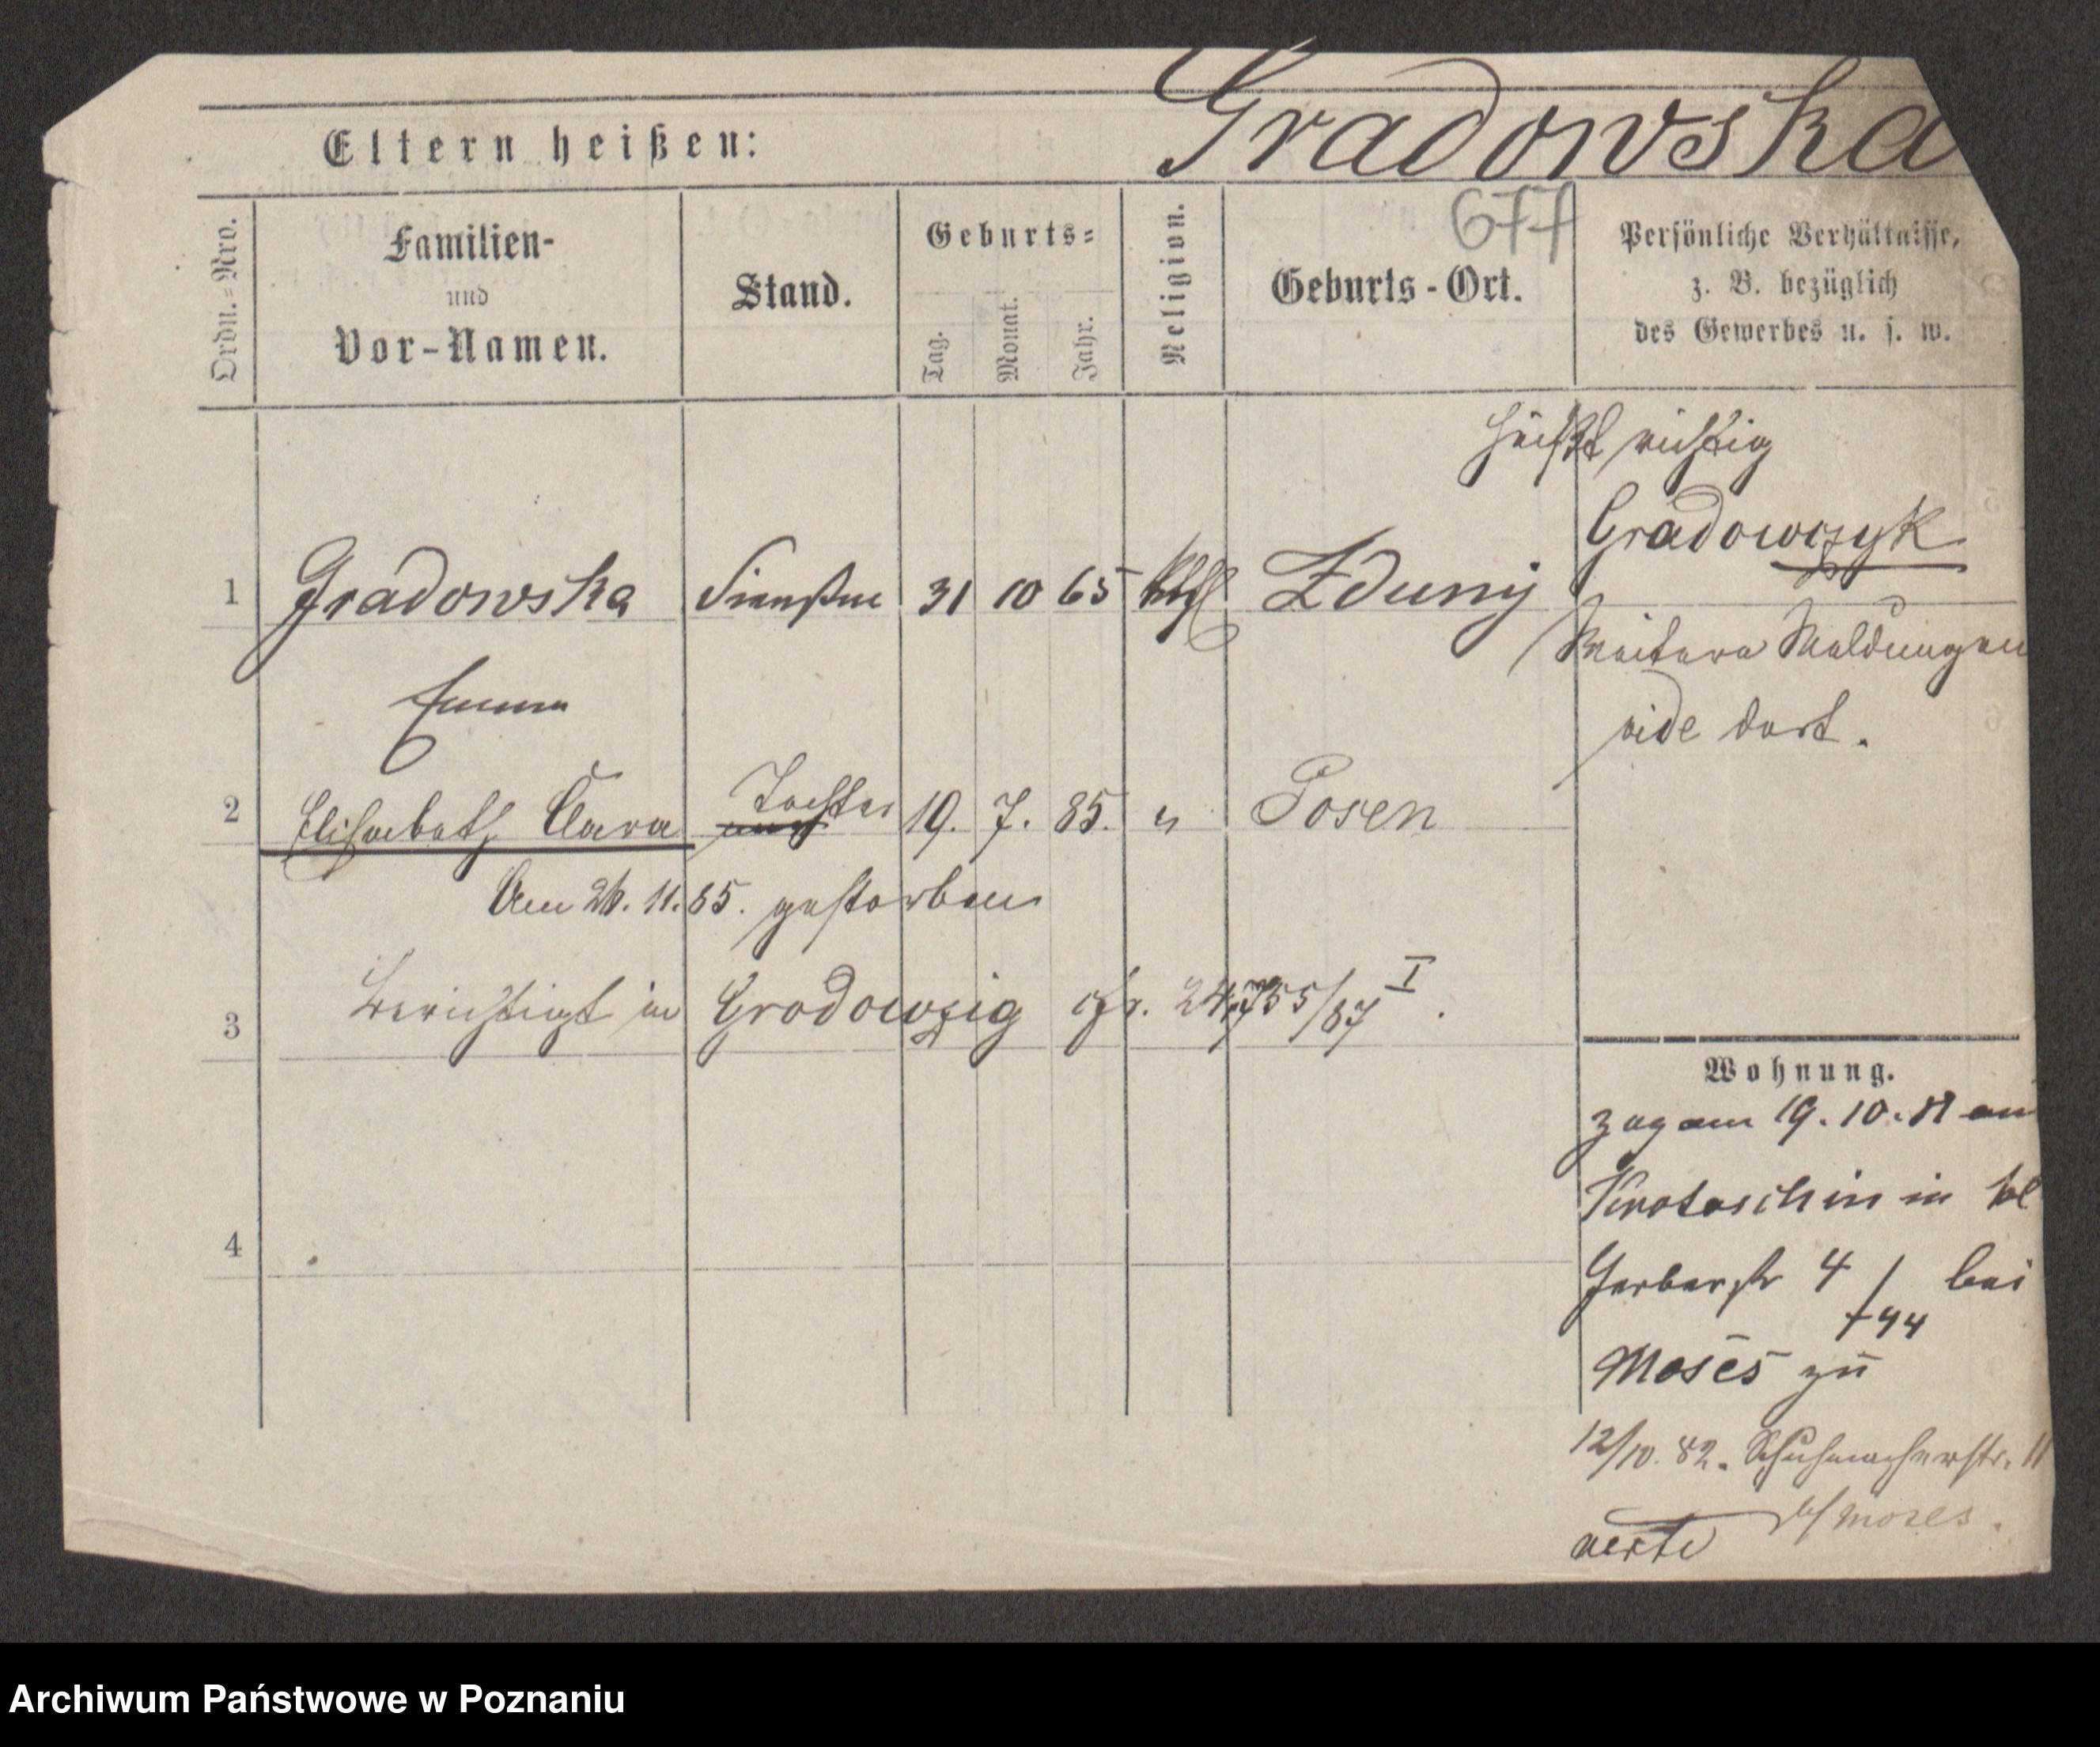 Gradowska
Eltern heißen:
677
Ordn.=Nro.
Familien-
und
Vor-Namen.
Stand.
Geburts=
Tag.
Monat.
Jahr.
Religion.
Geburts-Ort.
Persönliche Verhältnisse,
z. B. bezüglich
des Gewerbes u. s. w.
heißt richtig
Gradowczyk
1 Gradowska 31 10 65 kath Zduny
Weitere Meldungen
vide dort.
Emma
2 Elisabeth Clara Tochter 19. 7. 85. " Posen
Am 26. 11. 85. gestorben
3 Berichtigt in Grodowzig cfr. /87 I.
Wohnung.
zog am 19. 10. 81 aus
Krotoschin in kl
4
Gerberstr 4 / bei
+44
Moses zu
12/10. 82. Schuhmacherstr. 11
b/ Moses.